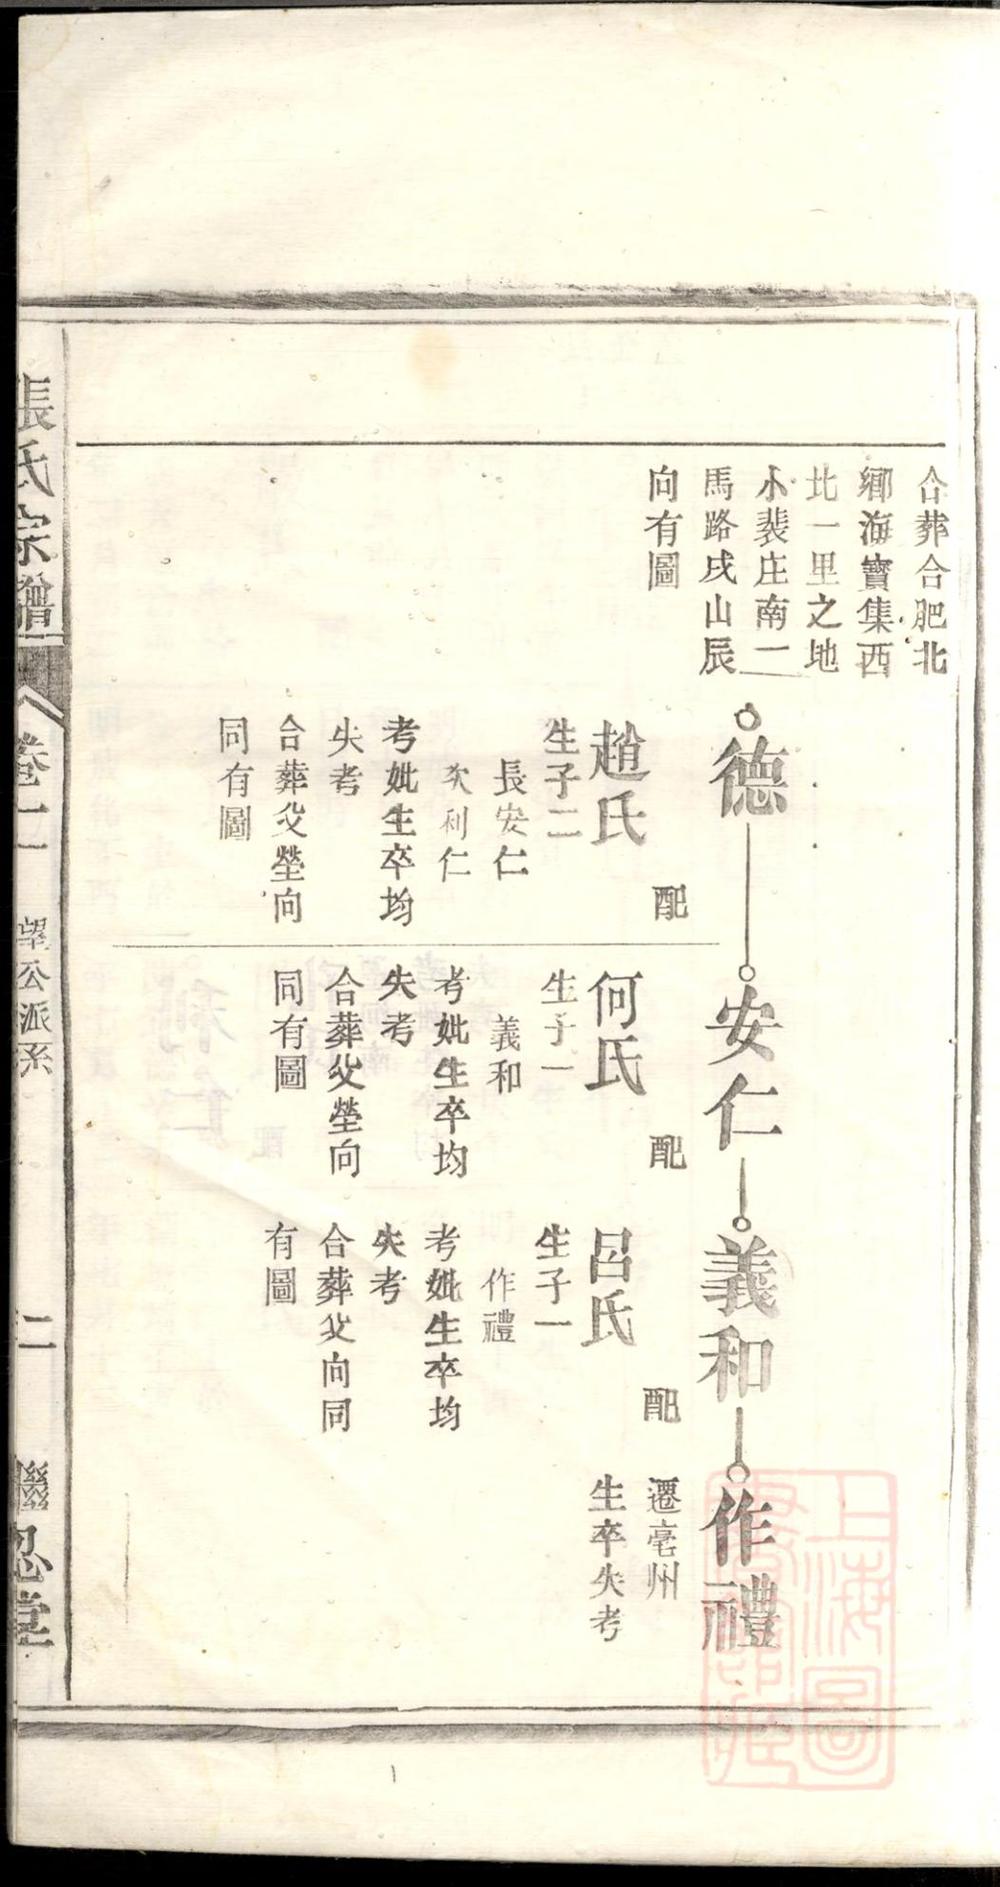 合葬合肥北
鄉海寶集西
北一里之地
小裴庄南一
馬路戌山辰
向有圖
德
配
趙氏
生子二
長安仁
次利仁
考妣生卒均
失考
合葬父塋向
同有圖
安仁
配
何氏
生子一
義和
考妣生卒均
失考
合葬父塋向
同有圖
義和
配
呂氏
生子一
作禮
考妣生卒均
失考
合葬父向同
有圖
作禮
遷亳州
生卒失考
張氏宗譜
卷一
望公派系
二
忍堂
上海圖